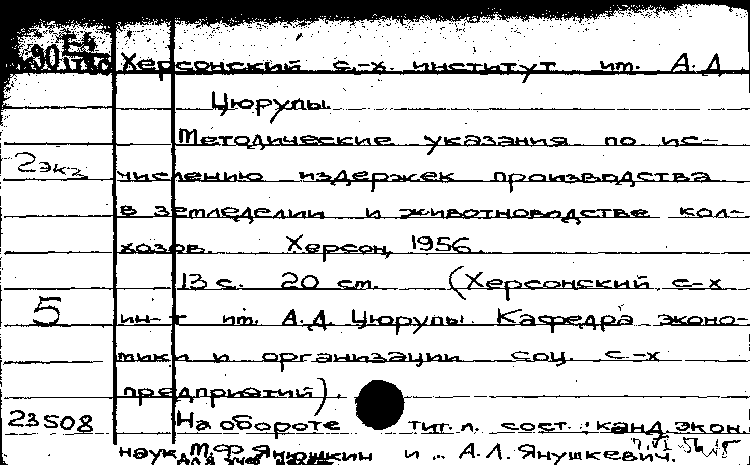 Е-4
90 1780
Херсонский с.-х. институт им. А.Д.
Цюрупы.
Методические указания по ис-
2 экз
числению издержек производства
в земледелии и животноводстве кол-
хозов. Херсон, 1956.
13 с. 20 см. (Херсонский с-х
5
ин-т им. А.Д. Цюрупы. Кафедра эконо-
мики и организации соц. с-х
предприятий).
23508
На обороте тит. л. сост.: канд. экон.
наук М.Ф. Янюшкин и А.Л. Янушкевич.